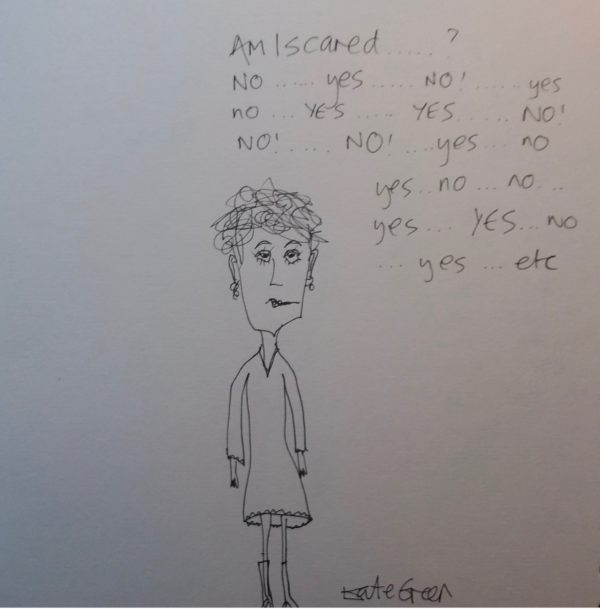 AM I scared.....?
NO.....yes.....NO!......yes
no...YES.....YES......NO!
NO!.....NO!...yes...no
yes..no...no...
yes...YES...no
...yes...etc
Kate Green